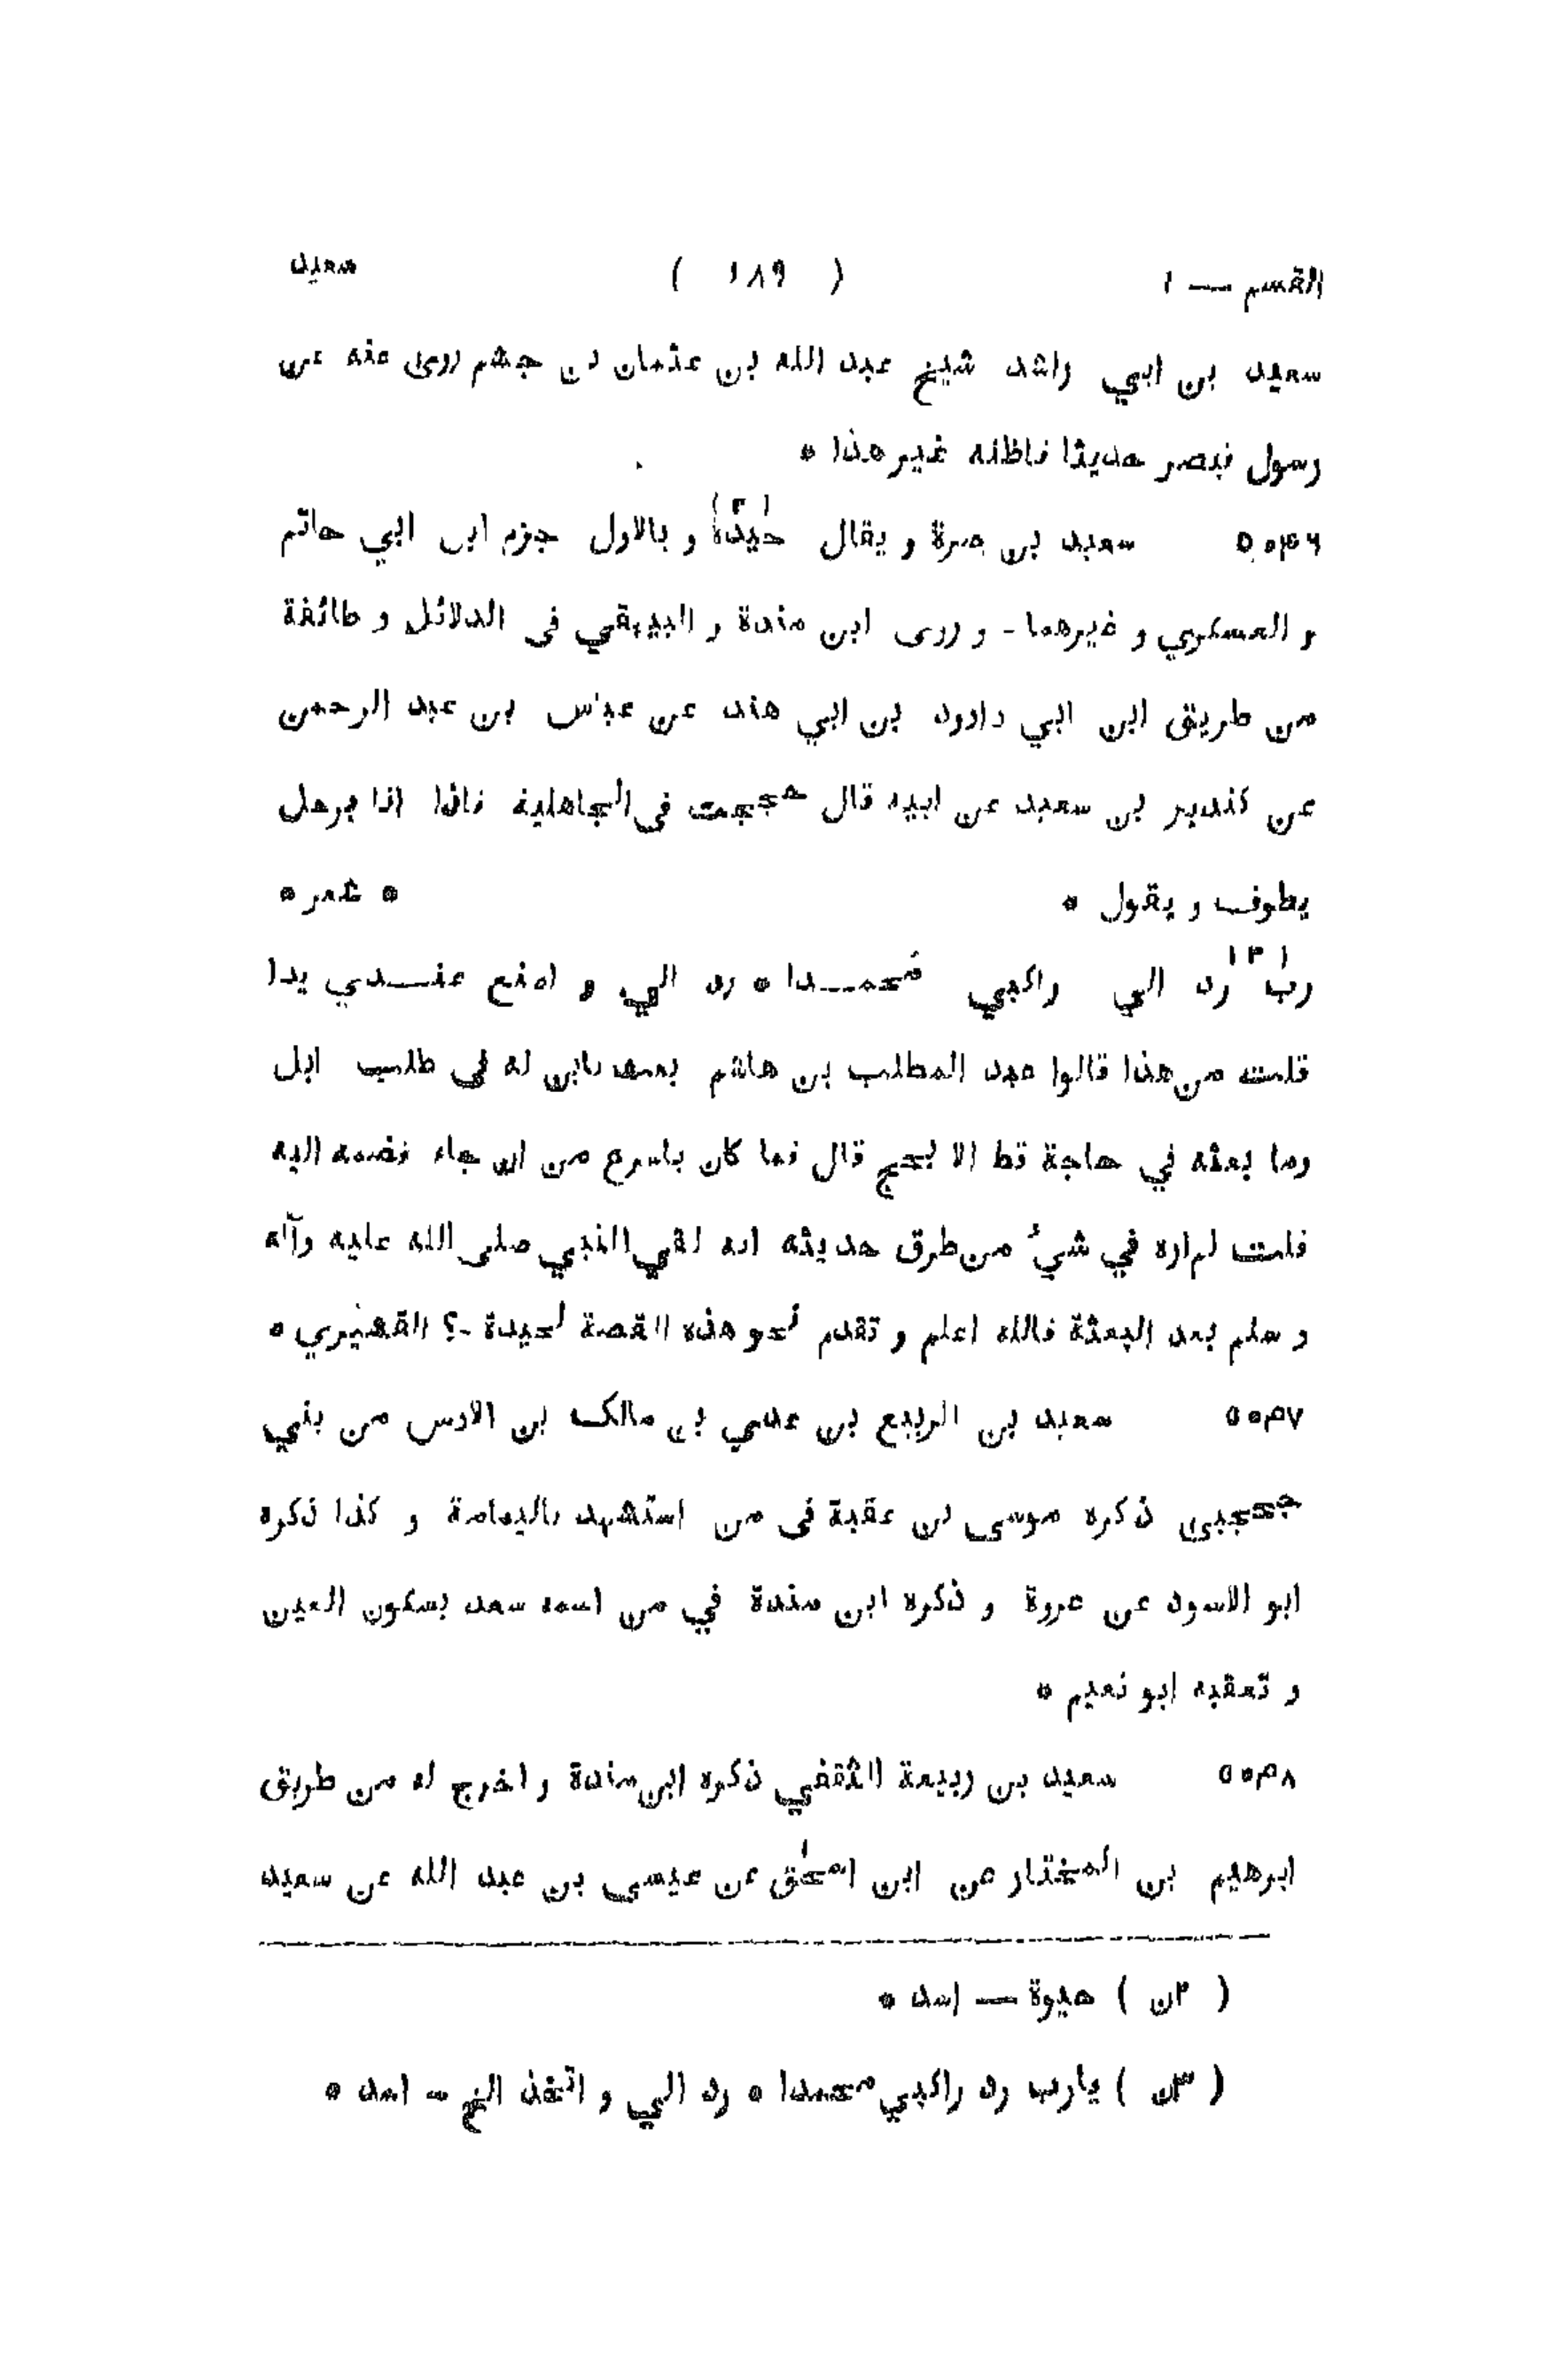 القسم — ١ ( ١٨٩ ) سعيد
سعيد بن ابي راشد شيخ عبد الله بن عثمان بن جشم روى عنه عن
رسول قيصر حديثا فاظنه غير هذا *
سعيد بن و يقال حيدة (٢) و بالاول جزم ابن ابي حاتم
و العسكري و غيرهما - و روى ابن مندة و البيهقي في الدلائل و طائفة
من طريق ابن ابي داوود بن ابي هند عن عباس بن عبد الرحمن
عن كندير بن سعيد عن ابيه قال حججت في الجاهلية فاذا انا برجل
يطوف و يقول * * شعر *
رب (٣) رد الي راكبي محمدا * رد الي و اصنع عندي يدا
قلت من هذا قالوا عبد المطلب بن هاشم بعث بابن له في طلب ابل
وما بعثه في حاجة قط الا نجح قال فما كان باسرع من ان جاء فضمه اليه
قلت لم اره في شيء من طرق حديثه انه لقي النبي صلى الله عليه وآله
و سلم بعد البعثة فالله اعلم و تقدم نحو هذه القصة لحيدة -؟ القشيري *
٥٥٣٧ سعيد بن الربيع بن عدي بن مالك بن الاوس من بني
جحجبى ذكره موسى بن عقبة في من استشهد باليمامة و كذا ذكره
ابو الاسود عن عروة و ذكره ابن مندة في من اسمه سعد بسكون العين
و تعقبه ابو نعيم *
٥٥٣٨ سعيد بن ربيعة الثقفي ذكره ابن مندة و اخرج له من طريق
ابرهيم بن المختار عن ابن اسحٰق عن عيسى بن عبد الله عن سعيد
( ٢ن ) حيوة — اسد *
( ٣ن ) يارب رد راكبي محمدا * رد الي و اتخذ الخ - اسد *